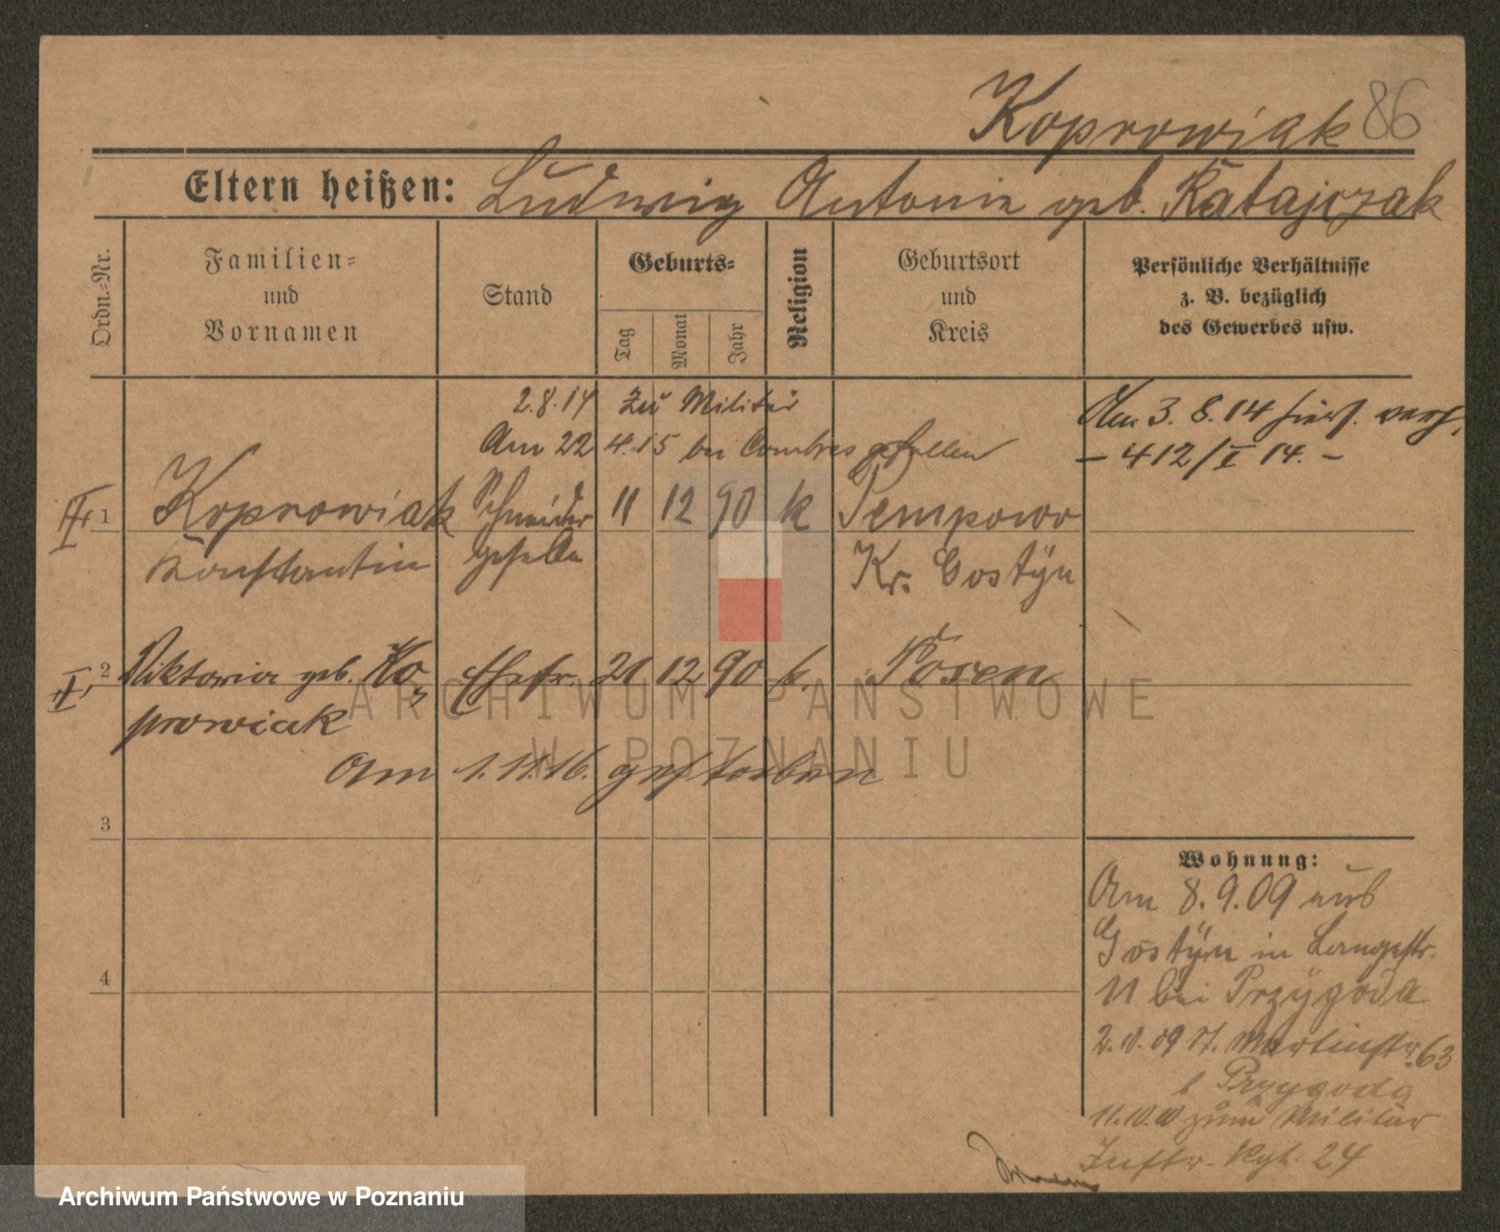 Koprowiak 86
Eltern heißen: Ludwig Antonie geb. Ratajczak
Ordn.-Nr.
Familien-
und
Vornamen
Stand
Geburts-
Tag
Monat
Jahr
Religion
Geburtsort
und
Kreis
Persönliche Verhältnisse
z. B. bezüglich
des Gewerbes usw.
2.8.14 Zu Militär
Am 22 4.15 bei Combres gefallen
Am 3. 8. 14 hier verh.
- 412/I 14. -
1 Koprowiak Schneider 11 12 90 k Pempowo
Konstantin geselle Kr. Gostÿn
I. 2 Viktoria geb. Ko- Ehefr. 21 12 90 k. Posen
prowiak
Am 1.11.16. gestorben
3
4
Wohnung:
Am 8.9.09 aus
Gostÿn in Langestr.
11 bei Przÿgoda
2.10.09 St. Martinstr. 63
b Przygoda
11.10.10 zum Militär
Inftr. Rgt. 24
ARCHIWUM PAŃSTWOWE
W POZNANIU
Archiwum Państwowe w Poznaniu